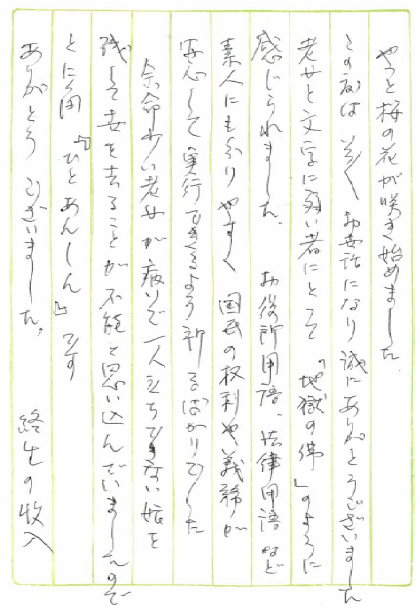 やっと梅の花が咲き始めました
この度は 大変 お世話になり 誠にありがとうございました
老女と文字に弱い者にとって「地獄の佛」のように
感じられました。 お役所用語、法律用語など
素人にもわかりやすく 国民の権利や義務が
安心して 実行できるよう 祈るばかりでした
余命少い老女が病いで一人立ちできない娘を
残して世を去ることが不能と思い込んでいましたので
とに角『ひとあんしん』です
ありがとう ございました。 終生の収入